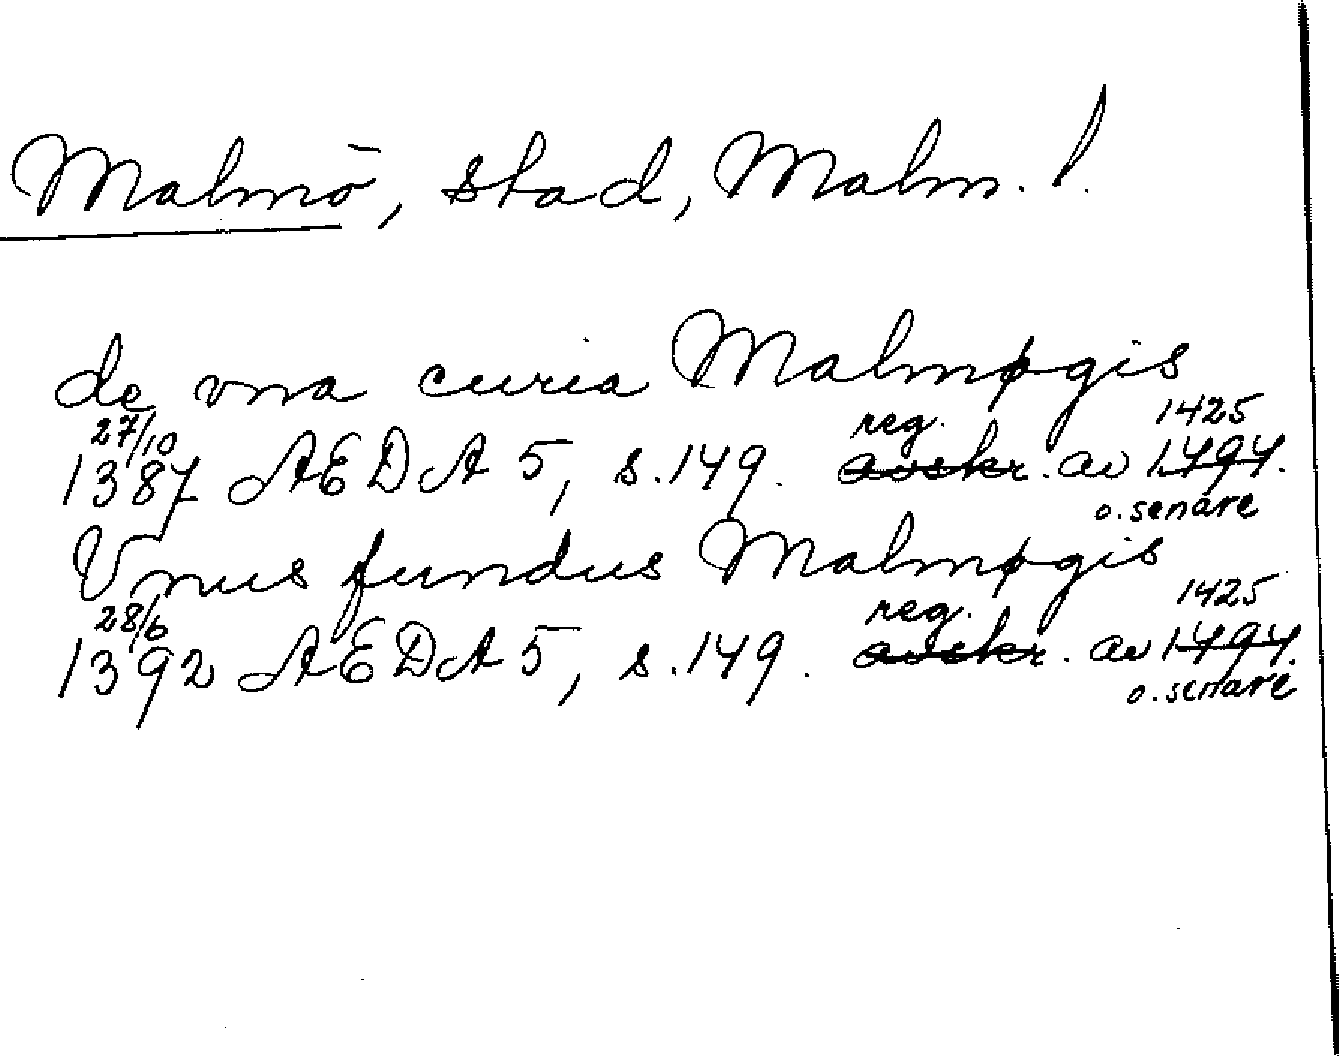 Malmö, stad, Malm. l.
de vna curia Malmøgis
27/10 reg. 1425
1387 ÆDA 5, s. 149. avskr. av 1494.
o. senare
Vnus fundus Malmøgis
28/6 reg. 1425
1392 ÆDA 5, s. 149. avskr. av 1494.
o. senare